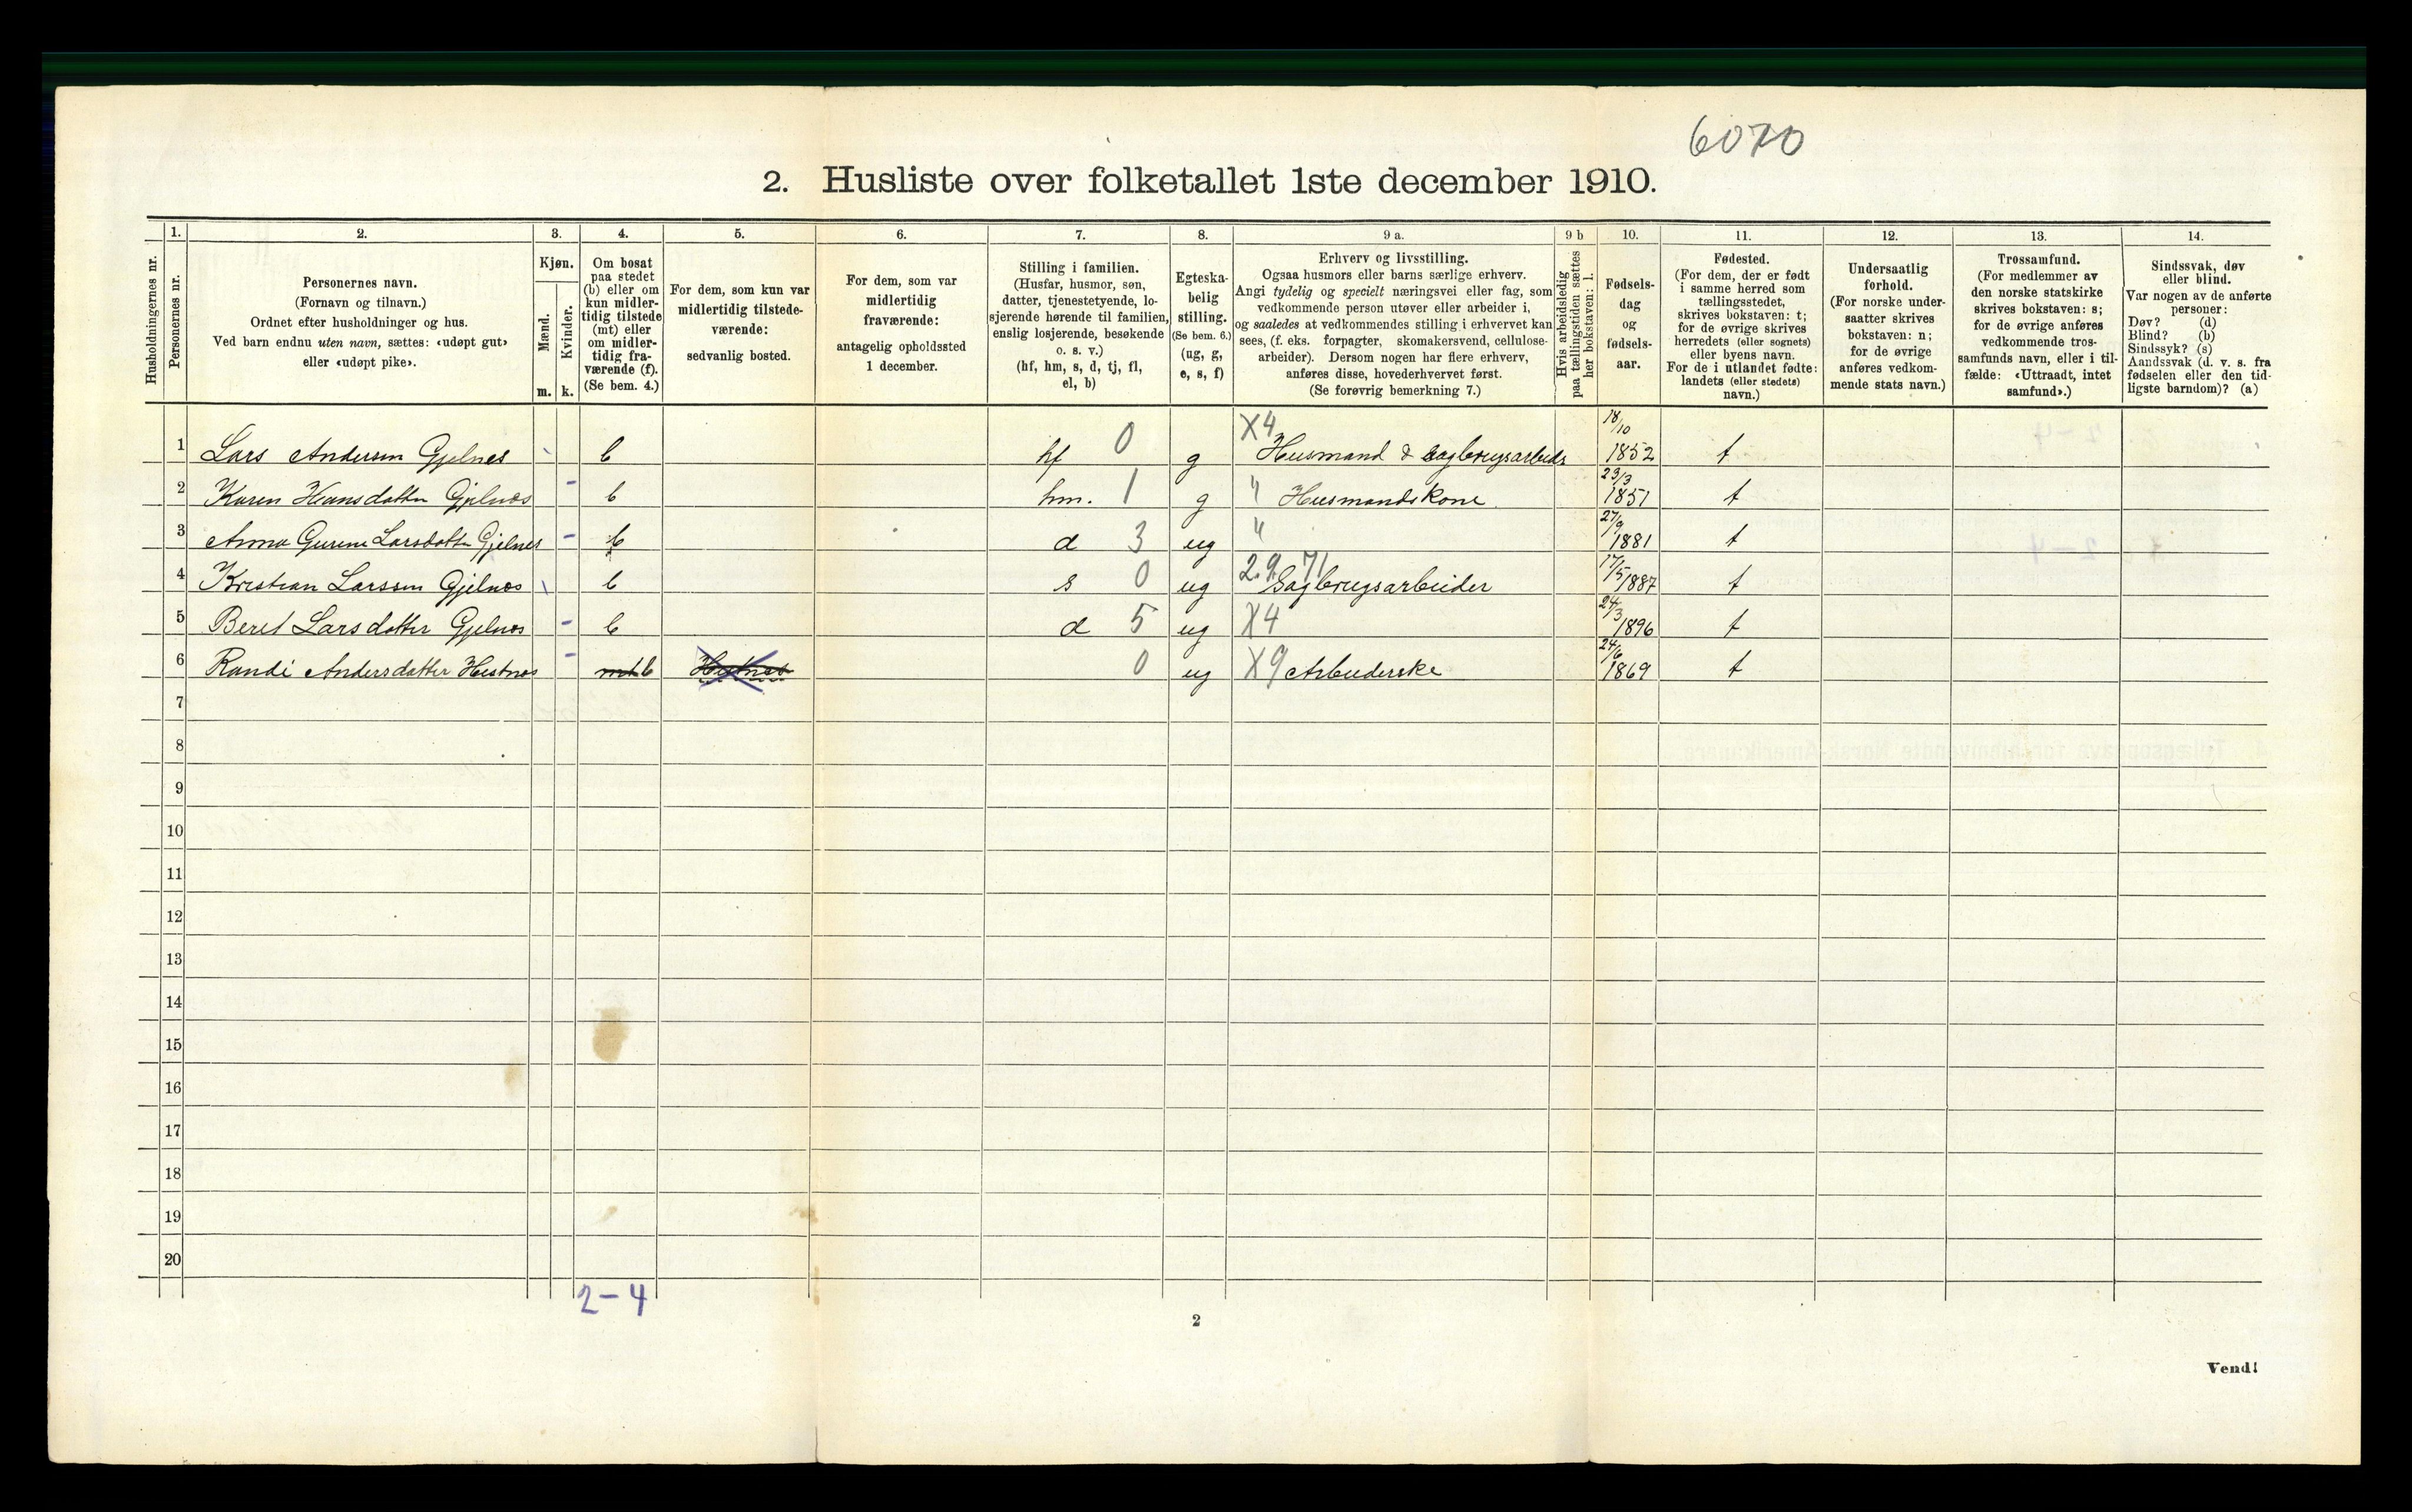 6070
2. Husliste over folketallet 1ste december 1910.
Husholdningernes nr.
1. Personernes nr.
2. Personernes navn.
(Fornavn og tilnavn.)
Ordnet efter husholdninger og hus.
Ved barn endnu uten navn, sættes: «udøpt gut»
eller «udøpt pike».
3. Kjøn.
Mænd. m.
Kvinder. k.
4. Om bosat
paa stedet
(b) eller om
kun midler-
tidig tilstede
(mt) eller
om midler-
tidig fra-
værende (f).
(Se bem. 4.)
5. For dem, som kun var
midlertidig tilstede-
værende:
sedvanlig bosted.
6. For dem, som var
midlertidig
fraværende:
antagelig opholdssted
1 december.
7. Stilling i familien.
(Husfar, husmor, søn,
datter, tjenestetyende, lo-
sjerende hørende til familien,
enslig losjerende, besøkende
o. s. v.)
(hf, hm, s, d, tj, fl,
el, b)
8. Egteska-
belig
stilling.
(Se bem. 6.)
(ug, g,
e, s, f)
9 a. Erhverv og livsstilling.
Ogsaa husmors eller barns særlige erhverv.
Angi tydelig og specielt næringsvei eller fag, som
vedkommende person utøver eller arbeider i,
og saaledes at vedkommendes stilling i erhvervet kan
sees, (f. eks. forpagter, skomakersvend, cellulose-
arbeider). Dersom nogen har flere erhverv,
anføres disse, hovederhvervet først.
(Se forøvrig bemerkning 7.)
9 b Hvis arbeidsledig
paa tællingstiden sættes
her bokstaven: l.
10. Fødsels-
dag
og
fødsels-
aar.
11. Fødested.
(For dem, der er født
i samme herred som
tællingsstedet,
skrives bokstaven: t;
for de øvrige skrives
herredets (eller sognets)
eller byens navn.
For de i utlandet fødte:
landets (eller stedets)
navn.)
12. Undersaatlig
forhold.
(For norske under-
saatter skrives
bokstaven: n;
for de øvrige
anføres vedkom-
mende stats navn.)
13. Trossamfund.
(For medlemmer av
den norske statskirke
skrives bokstaven: s;
for de øvrige anføres
vedkommende tros-
samfunds navn, eller i til-
fælde: «Uttraadt, intet
samfund».)
14. Sindssvak, døv
eller blind.
Var nogen av de anførte
personer:
Døv? (d)
Blind? (b)
Sindssyk? (s)
Aandssvak (d. v. s. fra
fødselen eller den tid-
ligste barndom)? (a)
1 Lars Andersen Gjelnes b hf 0 g X4 Husmand & sagbrugsarbeider 18/10 1852 t
2 Karen Hansdatter Gjelnes b hm. 1 g " Husmandskone 23/3 1851 t
3 Anna Gurine Larsdatter Gjelnes b d 3 ug " 27/9 1881 t
4 Kristian Larssen Gjelnes b s 0 ug 2.9. 71 Sagbrugsarbeider 17/5 1887 t
5 Beret Larsdatter Gjelnes b d 5 ug X4 24/3 1896 t
6 Randi Andersdatter Hestnes mt b Hestnes 0 ug X9 Arbeiderske 24/6 1869 t
7
8
9
10
11
12
13
14
15
16
17
18
19
20
2-4
2
Vend!